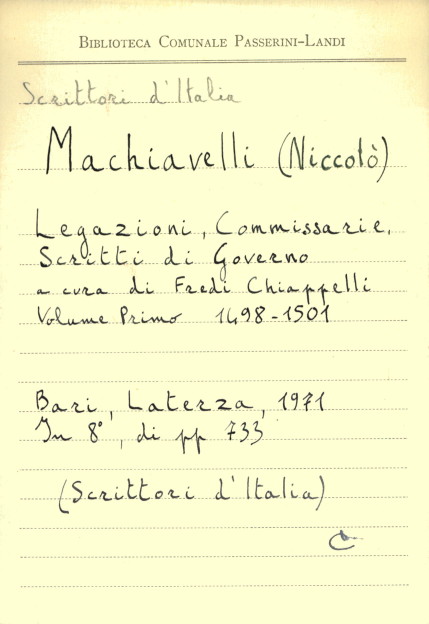 BIBLIOTECA COMUNALE PASSERINI-LANDI
Scrittori d'Italia
Machiavelli (Niccolò)
Legazioni, Commissarie,
Scritti di Governo
a cura di Fredi Chiappelli
Volume Primo 1498-1501
Bari, Laterza, 1971
In 8°, di pp 733
(Scrittori d'Italia)